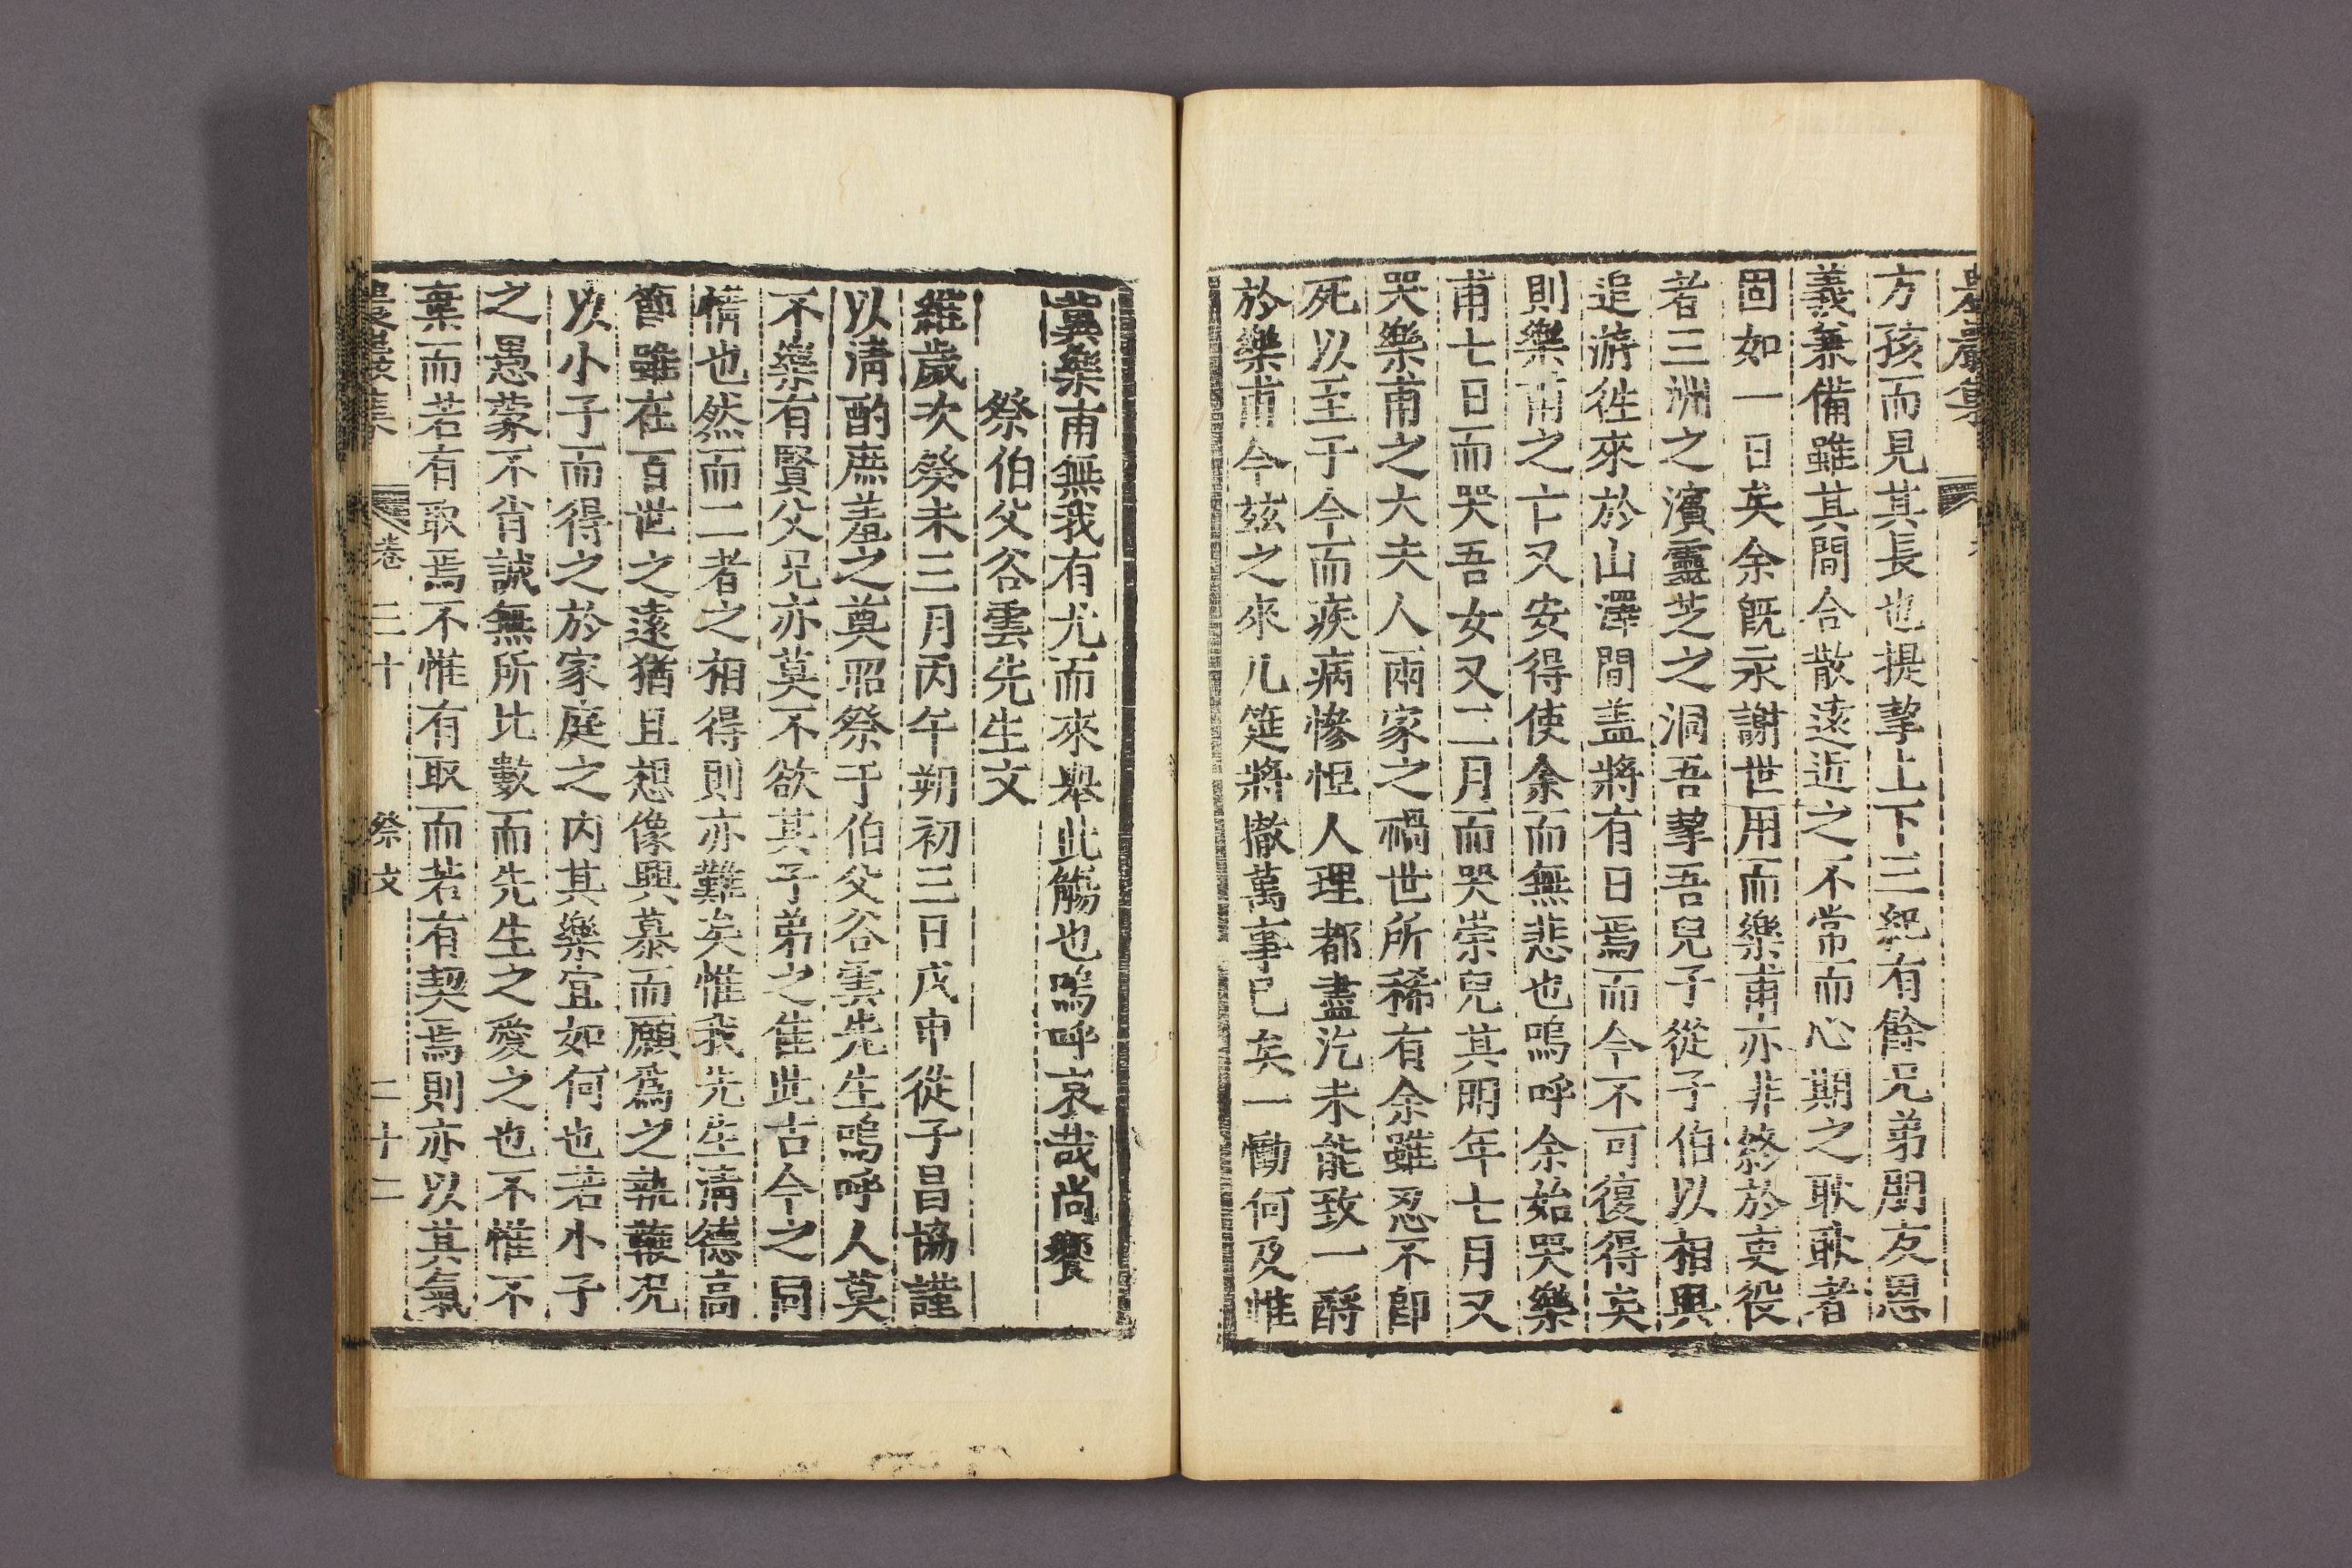 農巖集
方孩而見其長也提挈上下三紀有餘兄弟朋友恩
義兼備雖其間合散遠近之不常而心期之耿耿者
固如一日矣余旣永謝世用而樂甫亦非終於吏役
者三洲之濱靈芝之洞吾挈吾兒子從子伯以相與
追游徃來於山澤間盖將有日焉而今不可復得矣
則樂甫之亡又安得使余而無悲也嗚呼余始哭樂
甫七日而哭吾女又二月而哭崇兒其明年七月又
哭樂甫之大夫人兩家之禍世所稀有余雖忍不卽
死以至于今而疾病慘怛人理都盡汔未能致一酹
於樂甫今玆之來几筵將撤萬事已矣一慟何及惟
冀樂甫無我有尤而來擧此觴也嗚呼哀哉尚饗
祭伯父谷雲先生文
維歲次癸未三月丙午朔初三日戊申從子昌協謹
以淸酌庶羞之奠昭祭于伯父谷雲先生嗚呼人莫
不樂有賢父兄亦莫不欲其子弟之隹此古今之同
情也然而二者之相得則亦難矣惟我先生淸德高
節雖在百世之遠猶且想像興慕而願爲之執鞭况
以小子而得之於家庭之内其樂宜如何也若小子
之愚蒙不肖誠無所比數而先生之愛之也不惟不
棄而若有取焉不惟有取而若有契焉則亦以其氣
農巖集 卷三十 祭文 二十二